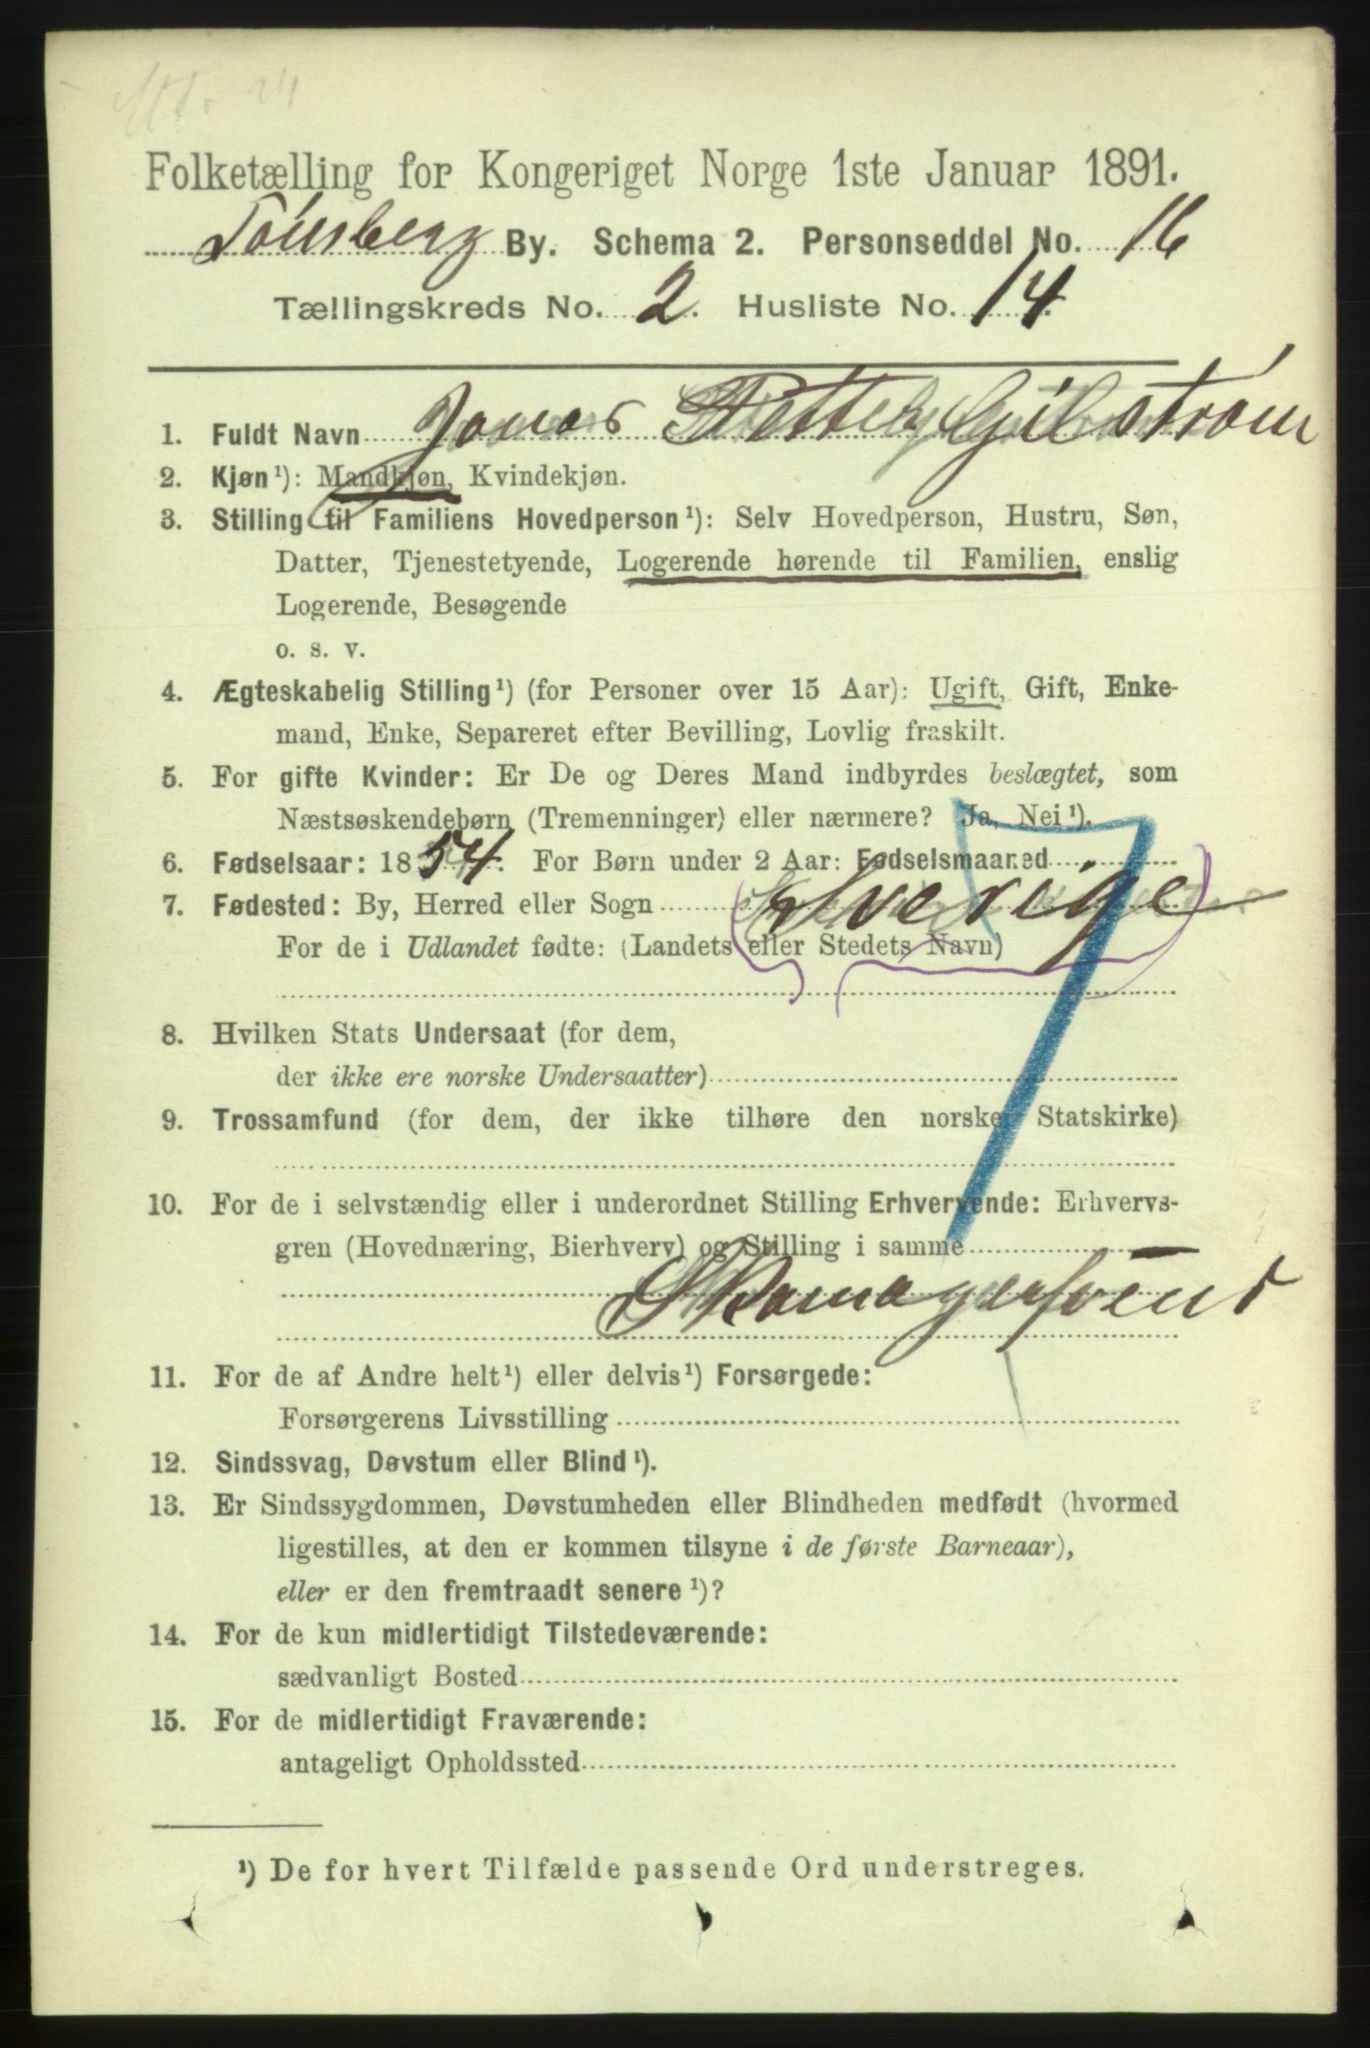 Folketælling for Kongeriget Norge 1ste Januar 1891.
Tönsberg By. Schema 2. Personseddel No. 16
Tællingskreds No. 2. Husliste No. 14.
1. Fuldt Navn Jonas Petter Gilström
2. Kjøn¹): Mandkjøn, Kvindekjøn.
3. Stilling til Familiens Hovedperson¹): Selv Hovedperson, Hustru, Søn,
Datter, Tjenestetyende, Logerende hørende til Familien, enslig
Logerende, Besøgende
o. s. v.
4. Ægteskabelig Stilling¹) (for Personer over 15 Aar): Ugift, Gift, Enke-
mand, Enke, Separeret efter Bevilling, Lovlig fraskilt.
5. For gifte Kvinder: Er De og Deres Mand indbyrdes beslægtet, som
Næstsøskendebørn (Tremenninger) eller nærmere? Ja, Nei¹).
6. Fødselsaar: 1854. For Børn under 2 Aar: Fødselsmaaned
7. Fødested: By, Herred eller Sogn Sverige
For de i Udlandet fødte: (Landets eller Stedets Navn)
8. Hvilken Stats Undersaat (for dem,
der ikke ere norske Undersaatter)
9. Trossamfund (for dem, der ikke tilhøre den norske Statskirke)
10. For de i selvstændig eller i underordnet Stilling Erhvervende: Erhvervs-
gren (Hovednæring, Bierhverv) og Stilling i samme
Skomagersvend
11. For de af Andre helt¹) eller delvis¹) Forsørgede:
Forsørgerens Livsstilling
12. Sindssvag, Døvstum eller Blind¹).
13. Er Sindssygdommen, Døvstumheden eller Blindheden medfødt (hvormed
ligestilles, at den er kommen tilsyne i de første Barneaar),
eller er den fremtraadt senere¹)?
14. For de kun midlertidigt Tilstedeværende:
sædvanligt Bosted
15. For de midlertidigt Fraværende:
antageligt Opholdssted
¹) De for hvert Tilfælde passende Ord understreges.